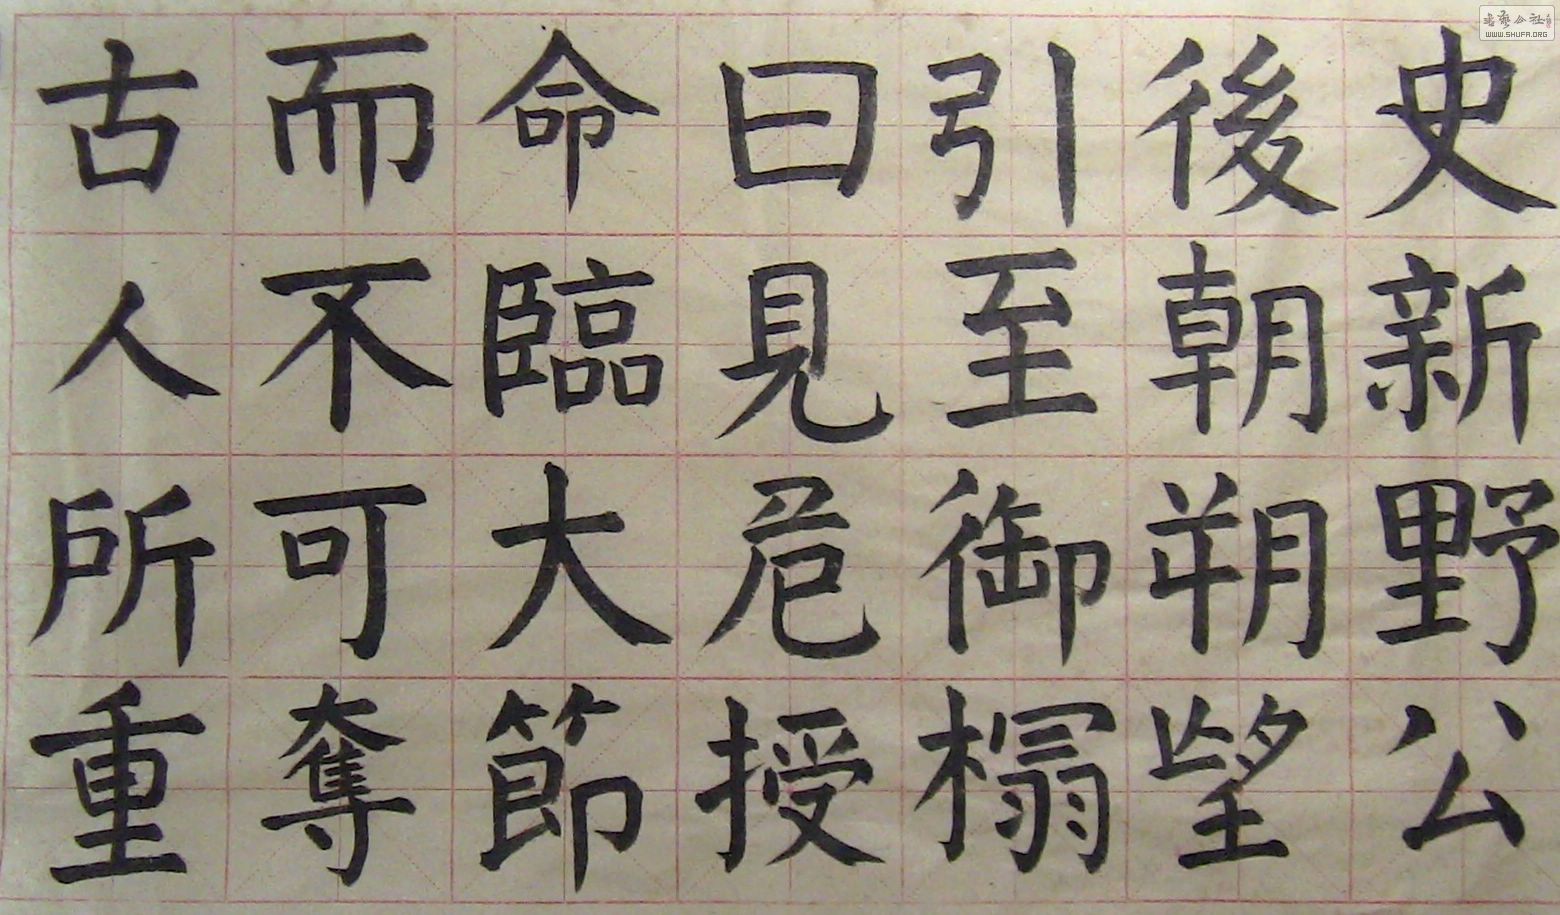 史新野公
後朝朔望
引至御榻
曰見危授
命臨大節
而不可奪
古人所重
书艺公社
WWW.SHUFA.ORG